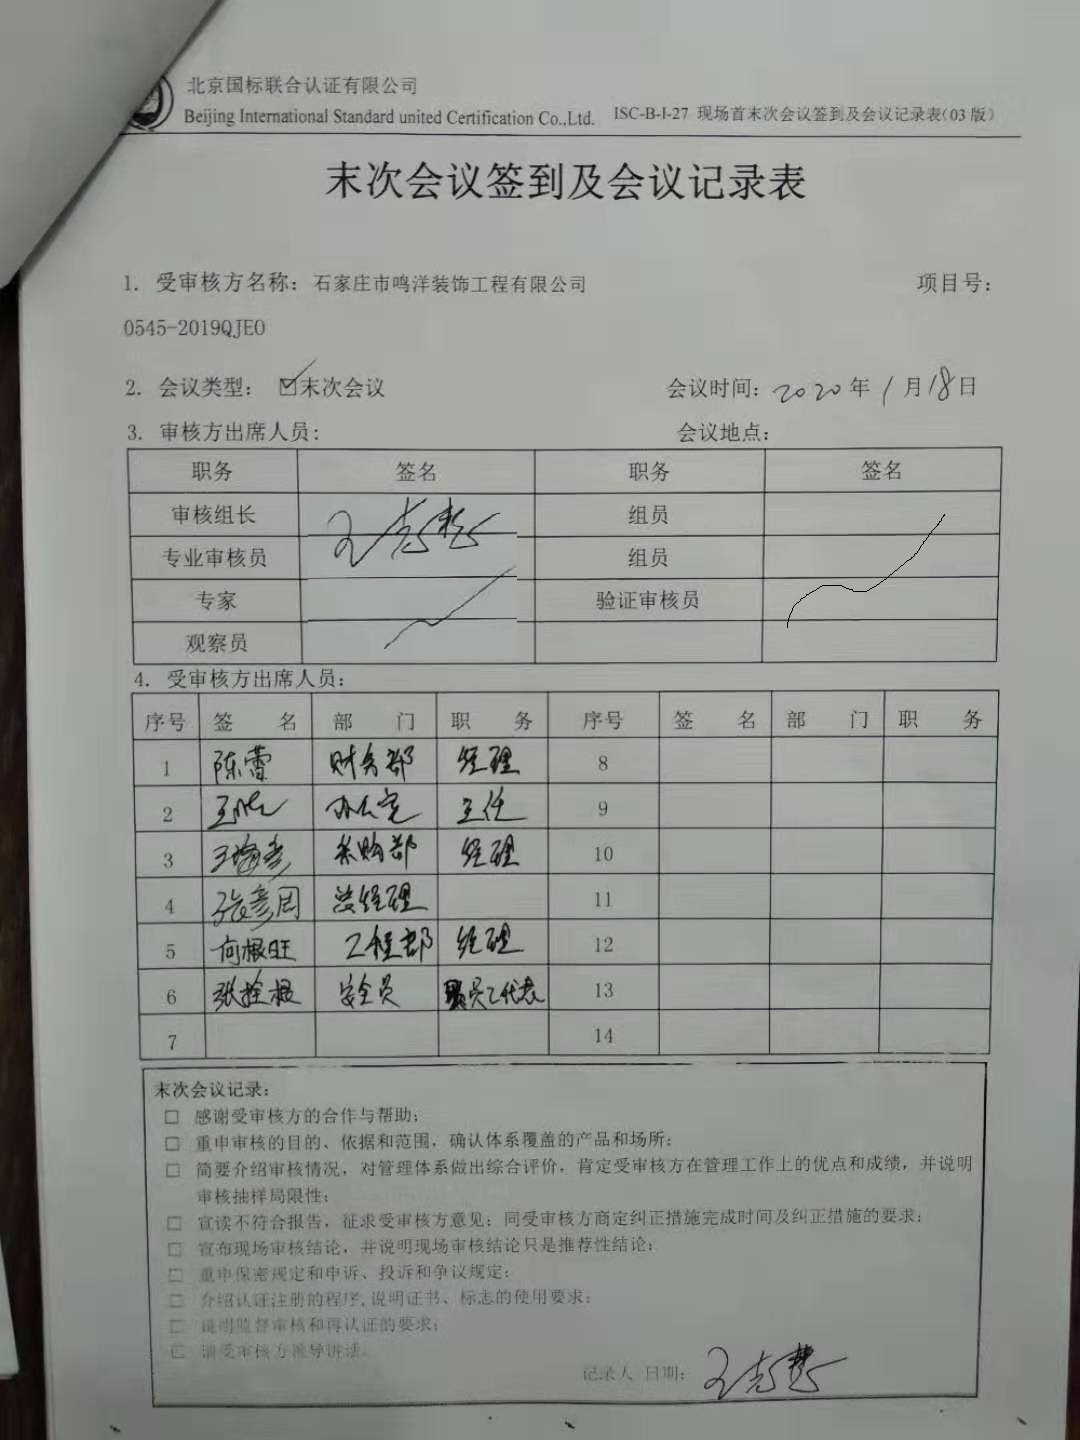 北京国标联合认证有限公司
Beijing International Standard united Certification Co.,Ltd. ISC-B-I-27 现场首末次会议签到及会议记录表(03版)
末次会议签到及会议记录表
1. 受审核方名称: 石家庄市鸣洋装饰工程有限公司 项目号:
0545-2019QJEO
2. 会议类型: ☑末次会议 会议时间: 2020年1月18日
3. 审核方出席人员: 会议地点:
职务 签名 职务 签名
审核组长 组员
专业审核员 组员
专家 验证审核员
观察员
4. 受审核方出席人员:
序号 签 名 部 门 职 务 序号 签 名 部 门 职 务
1 陈蕾 财务部 经理 8
2 办公室 主任 9
3 采购部 经理 10
4 张彦周 总经理 11
5 何根旺 工程部 经理 12
6 张拴根 安全员 员工代表 13
7 14
末次会议记录:
□ 感谢受审核方的合作与帮助;
□ 重申审核的目的、依据和范围，确认体系覆盖的产品和场所;
□ 简要介绍审核情况，对管理体系做出综合评价，肯定受审核方在管理工作上的优点和成绩，并说明
审核抽样局限性;
□ 宣读不符合报告，征求受审核方意见; 同受审核方商定纠正措施完成时间及纠正措施的要求;
□ 宣布现场审核结论，并说明现场审核结论只是推荐性结论;
□ 重申保密规定和申诉、投诉和争议规定;
□ 介绍认证注册的程序,说明证书、标志的使用要求;
□ 说明监督审核和再认证的要求;
□ 请受审核方领导讲话。
记录人 日期: